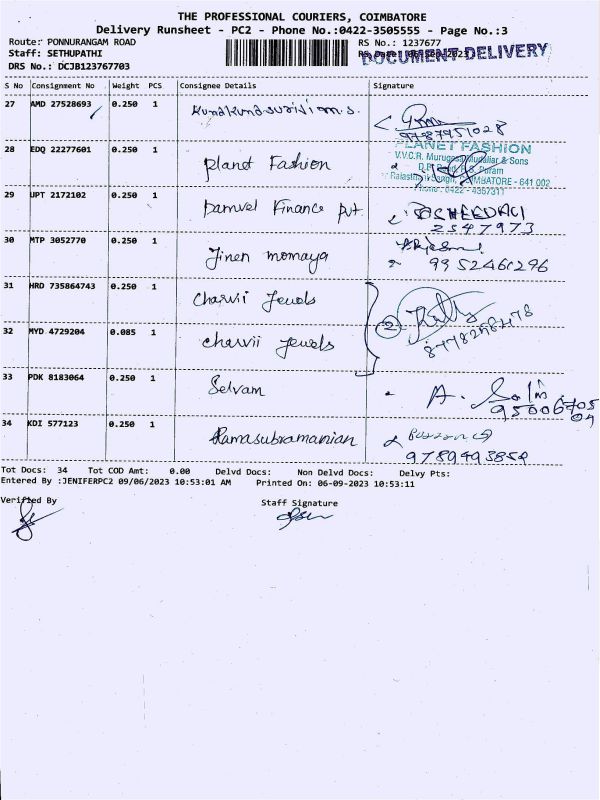 THE PROFESSIONAL COURIERS, COIMBATORE
Delivery Runsheet - PC2 - Phone No.:0422-3505555 - Page No.:3
Route: PONNURANGAM ROAD RS No.: 1237677
Staff: SETHUPATHI
DOCUMENT-DELIVERY
DRS No.: DCJB123767703
S No Consignment No Weight PCS Consignee Details Signature
27 AMD 27528693 0.250 1
9787951028
28 EDQ 22277601 0.250 1 Planet Fashion
PLANET FASHION
V.V.C.R. Murugesa Mudaliar & Sons
COIMBATORE - 641 002
Phone : 0422 - 4367311
29 UPT 2172102 0.250 1 Finance Pvt.
2547973
30 MTP 3052770 0.250 1 Jinen momaya
9952461296
31 HRD 735864743 0.250 1 Charvii Jewels
2
32 MYD 4729204 0.085 1 charvii jewels
8778258478
33 PDK 8183064 0.250 1 Selvam
34 KDI 577123 0.250 1 Ramasubramanian
Tot Docs: 34 Tot COD Amt: 0.00 Delvd Docs: Non Delvd Docs: Delvy Pts:
Entered By :JENIFERPC2 09/06/2023 10:53:01 AM Printed On: 06-09-2023 10:53:11
Verified By Staff Signature